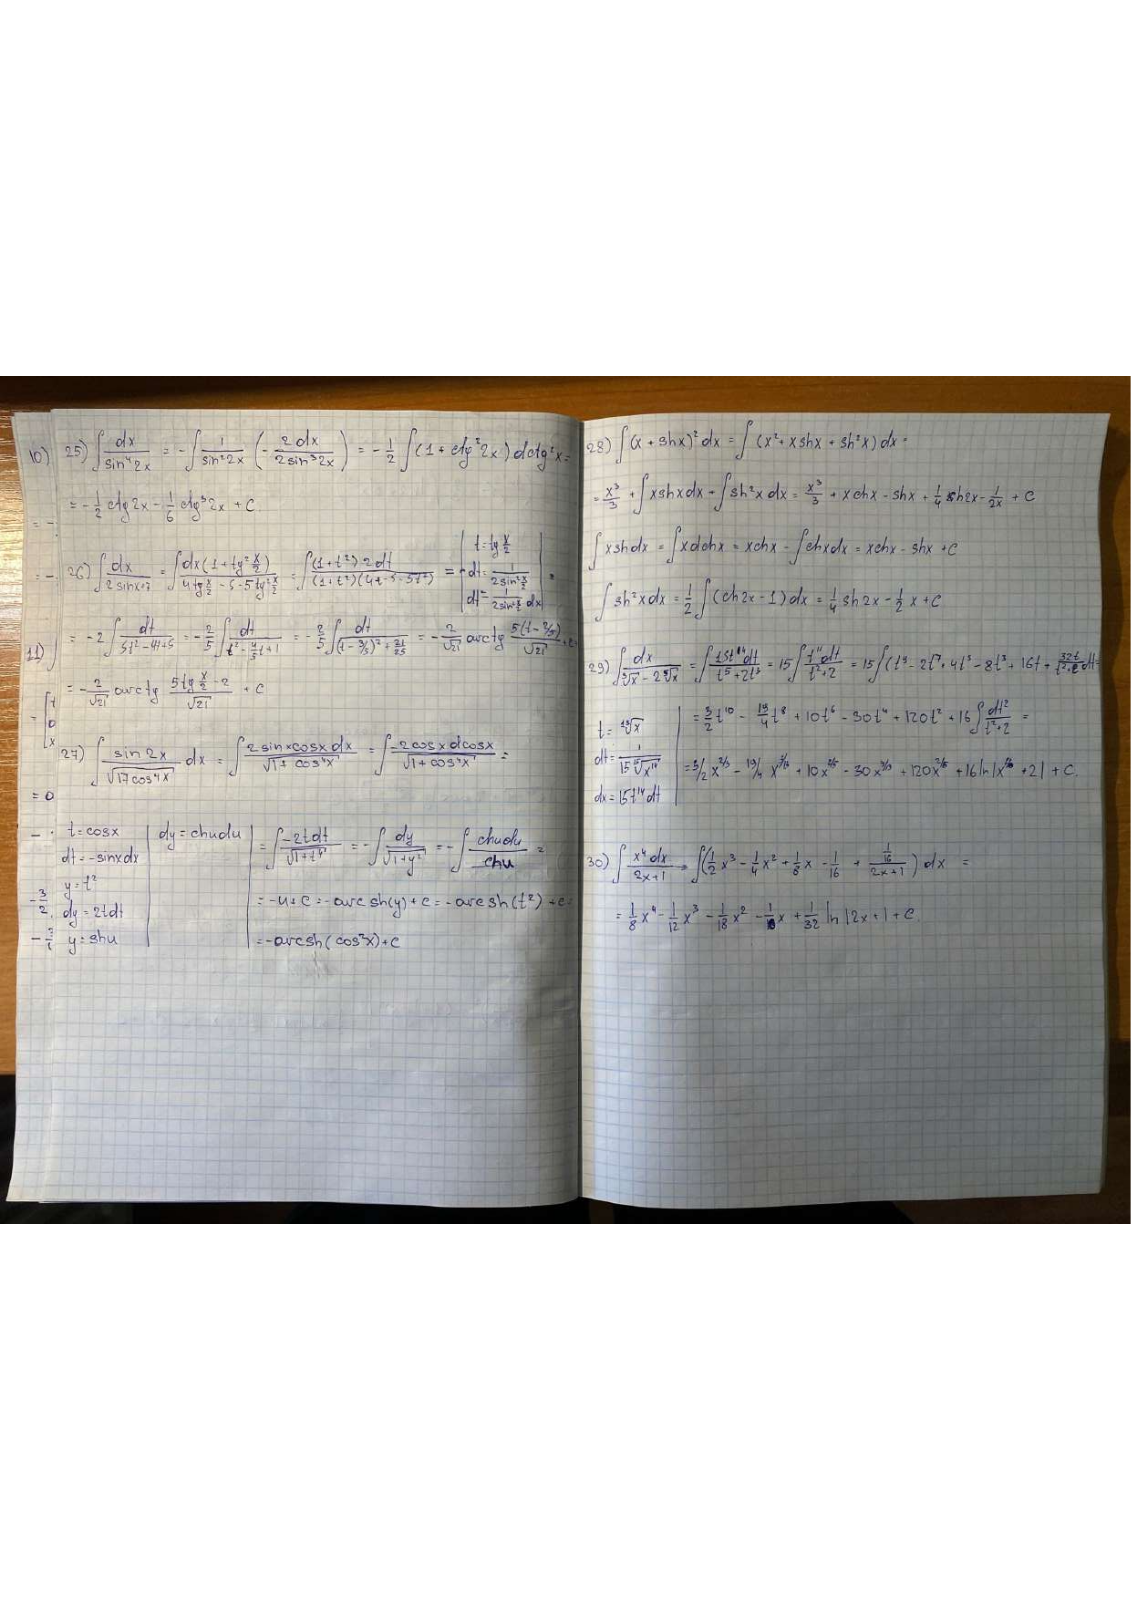 10)
25) ∫ dx / sin⁴2x = -∫ 1/sin²2x (- 2dx / 2sin³2x) = -1/2 ∫ (1 + ctg²2x) dctg²x =
= -1/2 ctg2x - 1/6 ctg³2x + C
26) ∫ dx / 2sinx-7 = ∫ dx(1+tg² x/2) / 4tg x/2 - 5 - 5tg² x/2 = ∫ (1+t²)·2dt / (1+t²)(4t-5-5t²) =
t = tg x/2
dt = 1 / 2sin² x/2
dt = 1 / 2sin² x/2 dx
11)
= -2∫ dt / 5t²-4t+5 = -2/5 ∫ dt / t² - 4/5 t + 1 = -2/5 ∫ dt / (t-2/5)² + 21/25 = -2/√21 arctg 5(t-2/5) / √21 + C =
= -2/√21 arctg 5tg x/2 - 2 / √21 + C
27) ∫ sin2x / √17cos⁴x dx = ∫ 2sinxcosxdx / √1+cos⁴x = ∫ -2cosxdcosx / √1+cos⁴x =
= 0
t = cosx
dt = -sinxdx
y = t²
dy = 2tdt
y = shu
dy = chudu
= ∫ -2tdt / √1+t⁴ = -∫ dy / √1+y² = -∫ chudu / chu =
= -u + c = -arcsh(y) + c = -arcsh(t²) + c =
= -arcsh(cos²x) + C
28) ∫ (x + shx)² dx = ∫ (x² + xshx + sh²x) dx =
= x³/3 + ∫ xshxdx + ∫ sh²x dx = x³/3 + xchx - shx + 1/4 sh2x - 1/2x + C
∫ xshdx = ∫ xdchx = xchx - ∫ chxdx = xchx - shx + C
∫ sh²xdx = 1/2 ∫ (ch2x - 1) dx = 1/4 sh2x - 1/2 x + C
29) ∫ dx / ³√x - 2⁵√x = ∫ 15t¹⁴dt / t⁵+2t³ = 15∫ t¹¹dt / t²+2 = 15∫ (t⁹ - 2t⁷ + 4t⁵ - 8t³ + 16t + 32t / t²+2) dt =
t = ¹⁵√x
dt = 1 / 15 ¹⁵√x¹⁴
dx = 15t¹⁴dt
= 3/2 t¹⁰ - 19/4 t⁸ + 10t⁶ - 30t⁴ + 120t² + 16∫ dt² / t²+2 =
30) ∫ x⁴dx / 2x+1 = ∫ (1/2 x³ - 1/4 x² + 1/8 x - 1/16 + 1/16 / 2x+1) dx =
= 1/8 x⁴ - 1/12 x³ - 1/18 x² - 1/16 x + 1/32 ln|2x+1 + C.